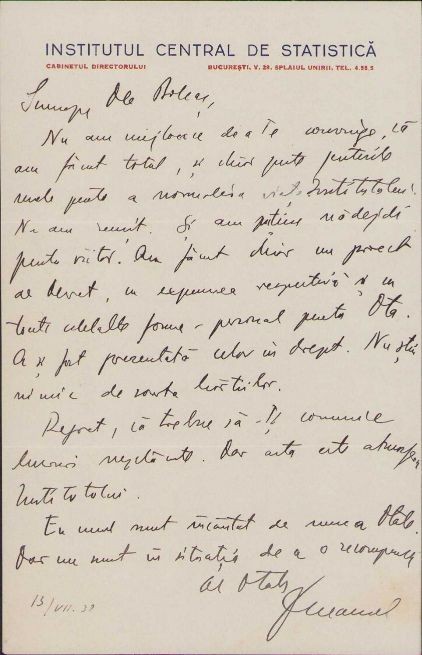 INSTITUTUL CENTRAL DE STATISTICĂ
CABINETUL DIRECTORULUI BUCUREȘTI, V. 28. SPLAIUL UNIRII. TEL. 4.55.5
Nu am mijloace de a Te convinge, că
am făcut totul, și chiar peste puterile
mele pentru a normaliza viața Institutului.
Nu am reușit. Și am puține nădejdi
pentru viitor. Am făcut chiar un proect
de decret, cu expunerea respectivă și cu
toate celelalte forme - personal pentru Dta.
A și fost prezentată celor în drept. Nu știu
nimic de soarta hârtiilor.
Regret, că trebue să-Ți comunic
lucruri neplăcute. Dar asta este atmosfera
Institutului.
Eu unul sunt încântat de munca Dtale.
Dar nu sunt în situația de a o recompensa
Al Dtale
13/VII. 38